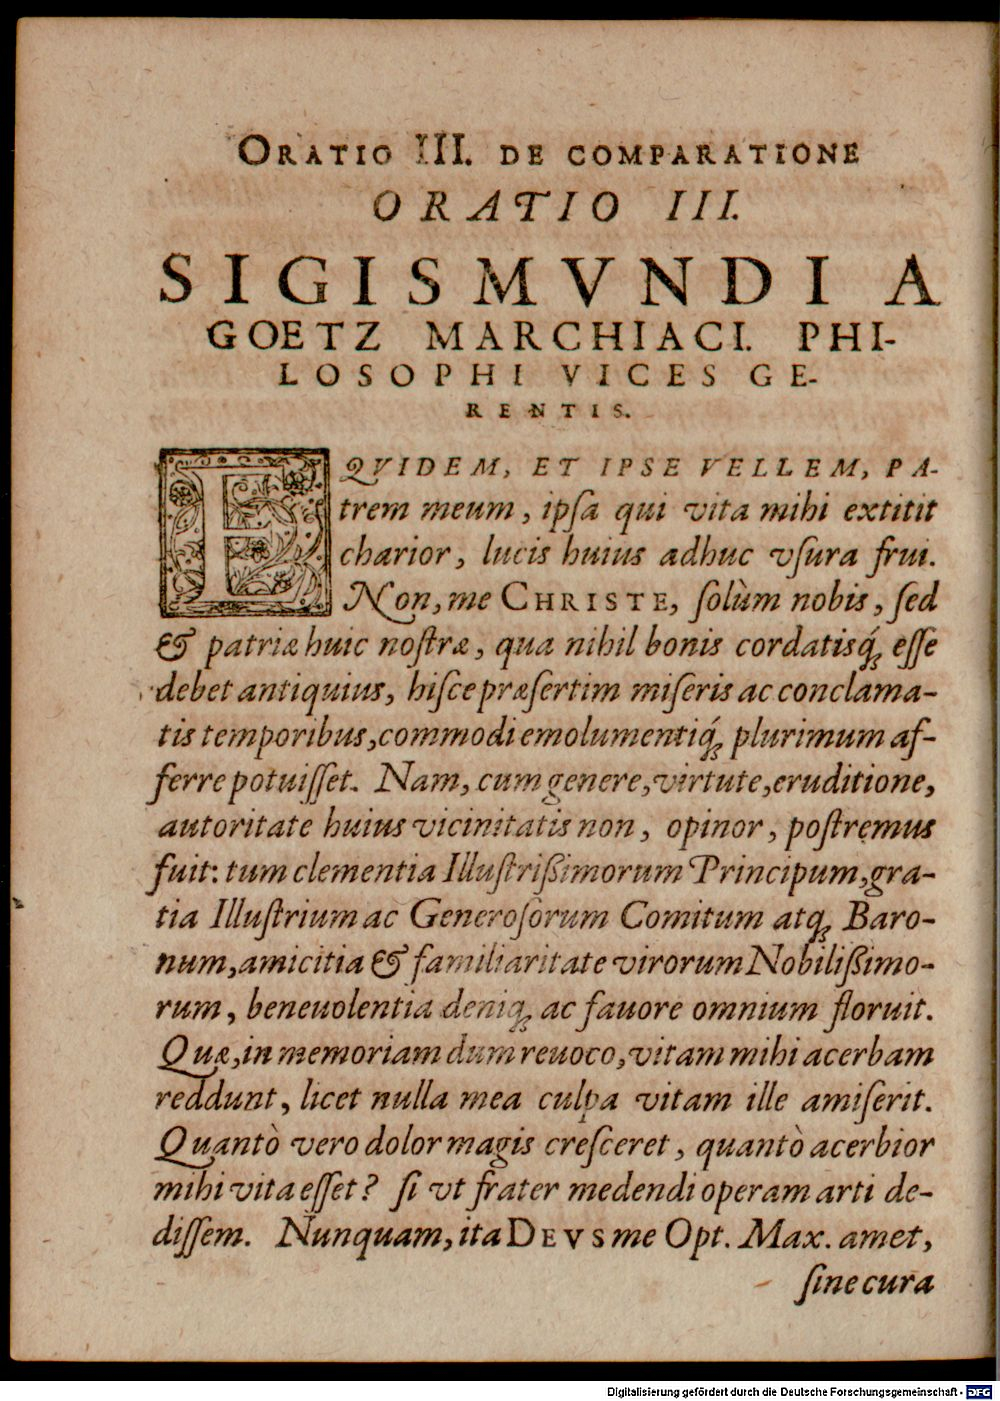 ORATIO III. DE COMPARATIONE
ORATIO III.
SIGISMVNDI A
GOETZ MARCHIACI. PHI-
LOSOPHI VICES GE-
RENTIS.
EQVIDEM, ET IPSE VELLEM, PA-
trem meum, ipſa qui vita mihi extitit
charior, lucis huius adhuc vſura frui.
Non, me CHRISTE, ſolùm nobis, ſed
& patriæ huic noſtræ, qua nihil bonis cordatisq́; eſſe
debet antiquius, hiſce præſertim miſeris ac conclama-
tis temporibus, commodi emolumentiq́; plurimum af-
ferre potuiſſet. Nam, cum genere, virtute, eruditione,
autoritate huius vicinitatis non, opinor, poſtremus
fuit: tum clementia Illuſtrißimorum Principum, gra-
tia Illuſtrium ac Generoſorum Comitum atq; Baro-
num, amicitia & familiaritate virorum Nobilißimo-
rum, beneuolentia deniq; ac fauore omnium floruit.
Quæ, in memoriam dum reuoco, vitam mihi acerbam
reddunt, licet nulla mea culpa vitam ille amiſerit.
Quantò vero dolor magis creſceret, quantò acerbior
mihi vita eſſet? ſi vt frater medendi operam arti de-
diſſem. Nunquam, ita DEVS me Opt. Max. amet,
ſine cura
Digitalisierung gefördert durch die Deutsche Forschungsgemeinschaft - DFG